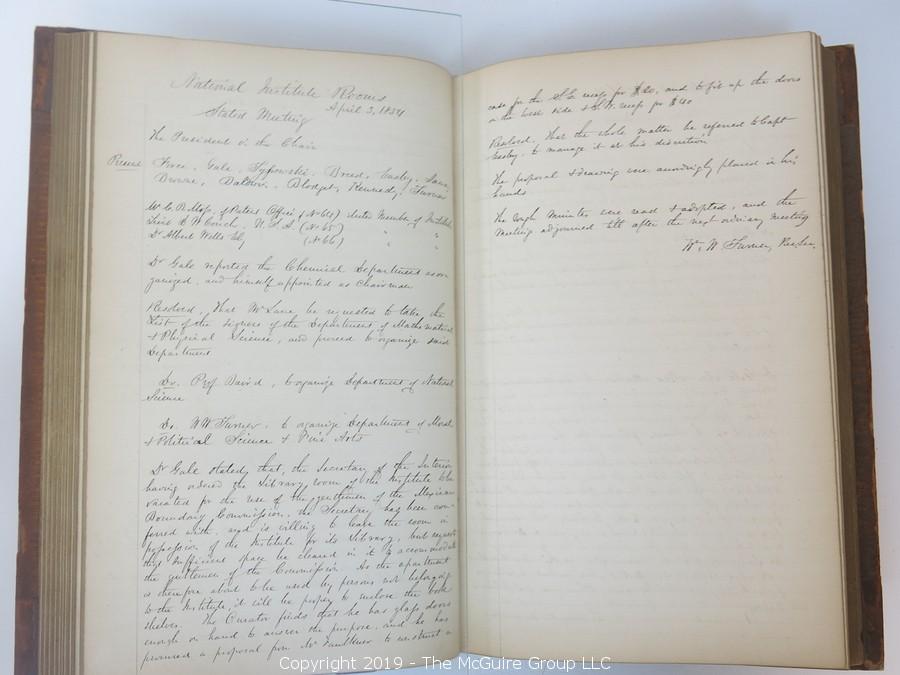 National Institute Rooms
April 3, 1854
Stated Meeting
The President in the Chair
Present Force, Gale, Sypowski, Breed, Easby, Lane,
Browne, Baldwin, Blodget, Kennedy, Turner
W. C. R. Moss, of Patent Office (No 64) elected Member of Institute
Lieut D N Couch, U.S.A. (No 65) " "
Dr Albert Wells (No 66) " "
Dr Gale reported the Chemical Department as or-
ganized, and himself appointed as Chairman
Resolved, That Mr Lane be requested to take the
List of the signers of the Department of Mathematical
& Physical Science, and proceed to organize said
Department
Do. Prof Baird, to organize Department of Natural
Science
Do. W W Turner, to organize Department of Moral
& Political Science & Fine Arts
Dr Gale stated, that, the Secretary of the Interior
having ordered the Library room of the Institute to be
vacated for the use of the gentlemen of the Mexican
Boundary Commission, the Secretary has been con-
ferred with, and is willing to leave the room in
possession of the Institute for its Library, but requests
that sufficient space be cleared in it to accommodate
the gentlemen of the Commission. As the apartment
is therefore about to be used by persons not belonging
to the Institute, it will be proper to inclose the book
shelves. The Curator finds that he has glass doors
enough on hand to answer the purpose, and he has
procured a proposal from Mr Faulkner to construct a
case for the S.E. recess for $20, and to fit up the doors
on the West side & N.W. recess for $40
Resolved, That the whole matter be referred to Capt
Easby, to manage it at his discretion
The proposal & drawing were accordingly placed in his
hands
The rough minutes were read & adopted, and the
meeting adjourned till after the next ordinary meeting
Wm W Turner, Rec Sec.
Copyright 2019 - The McGuire Group LLC